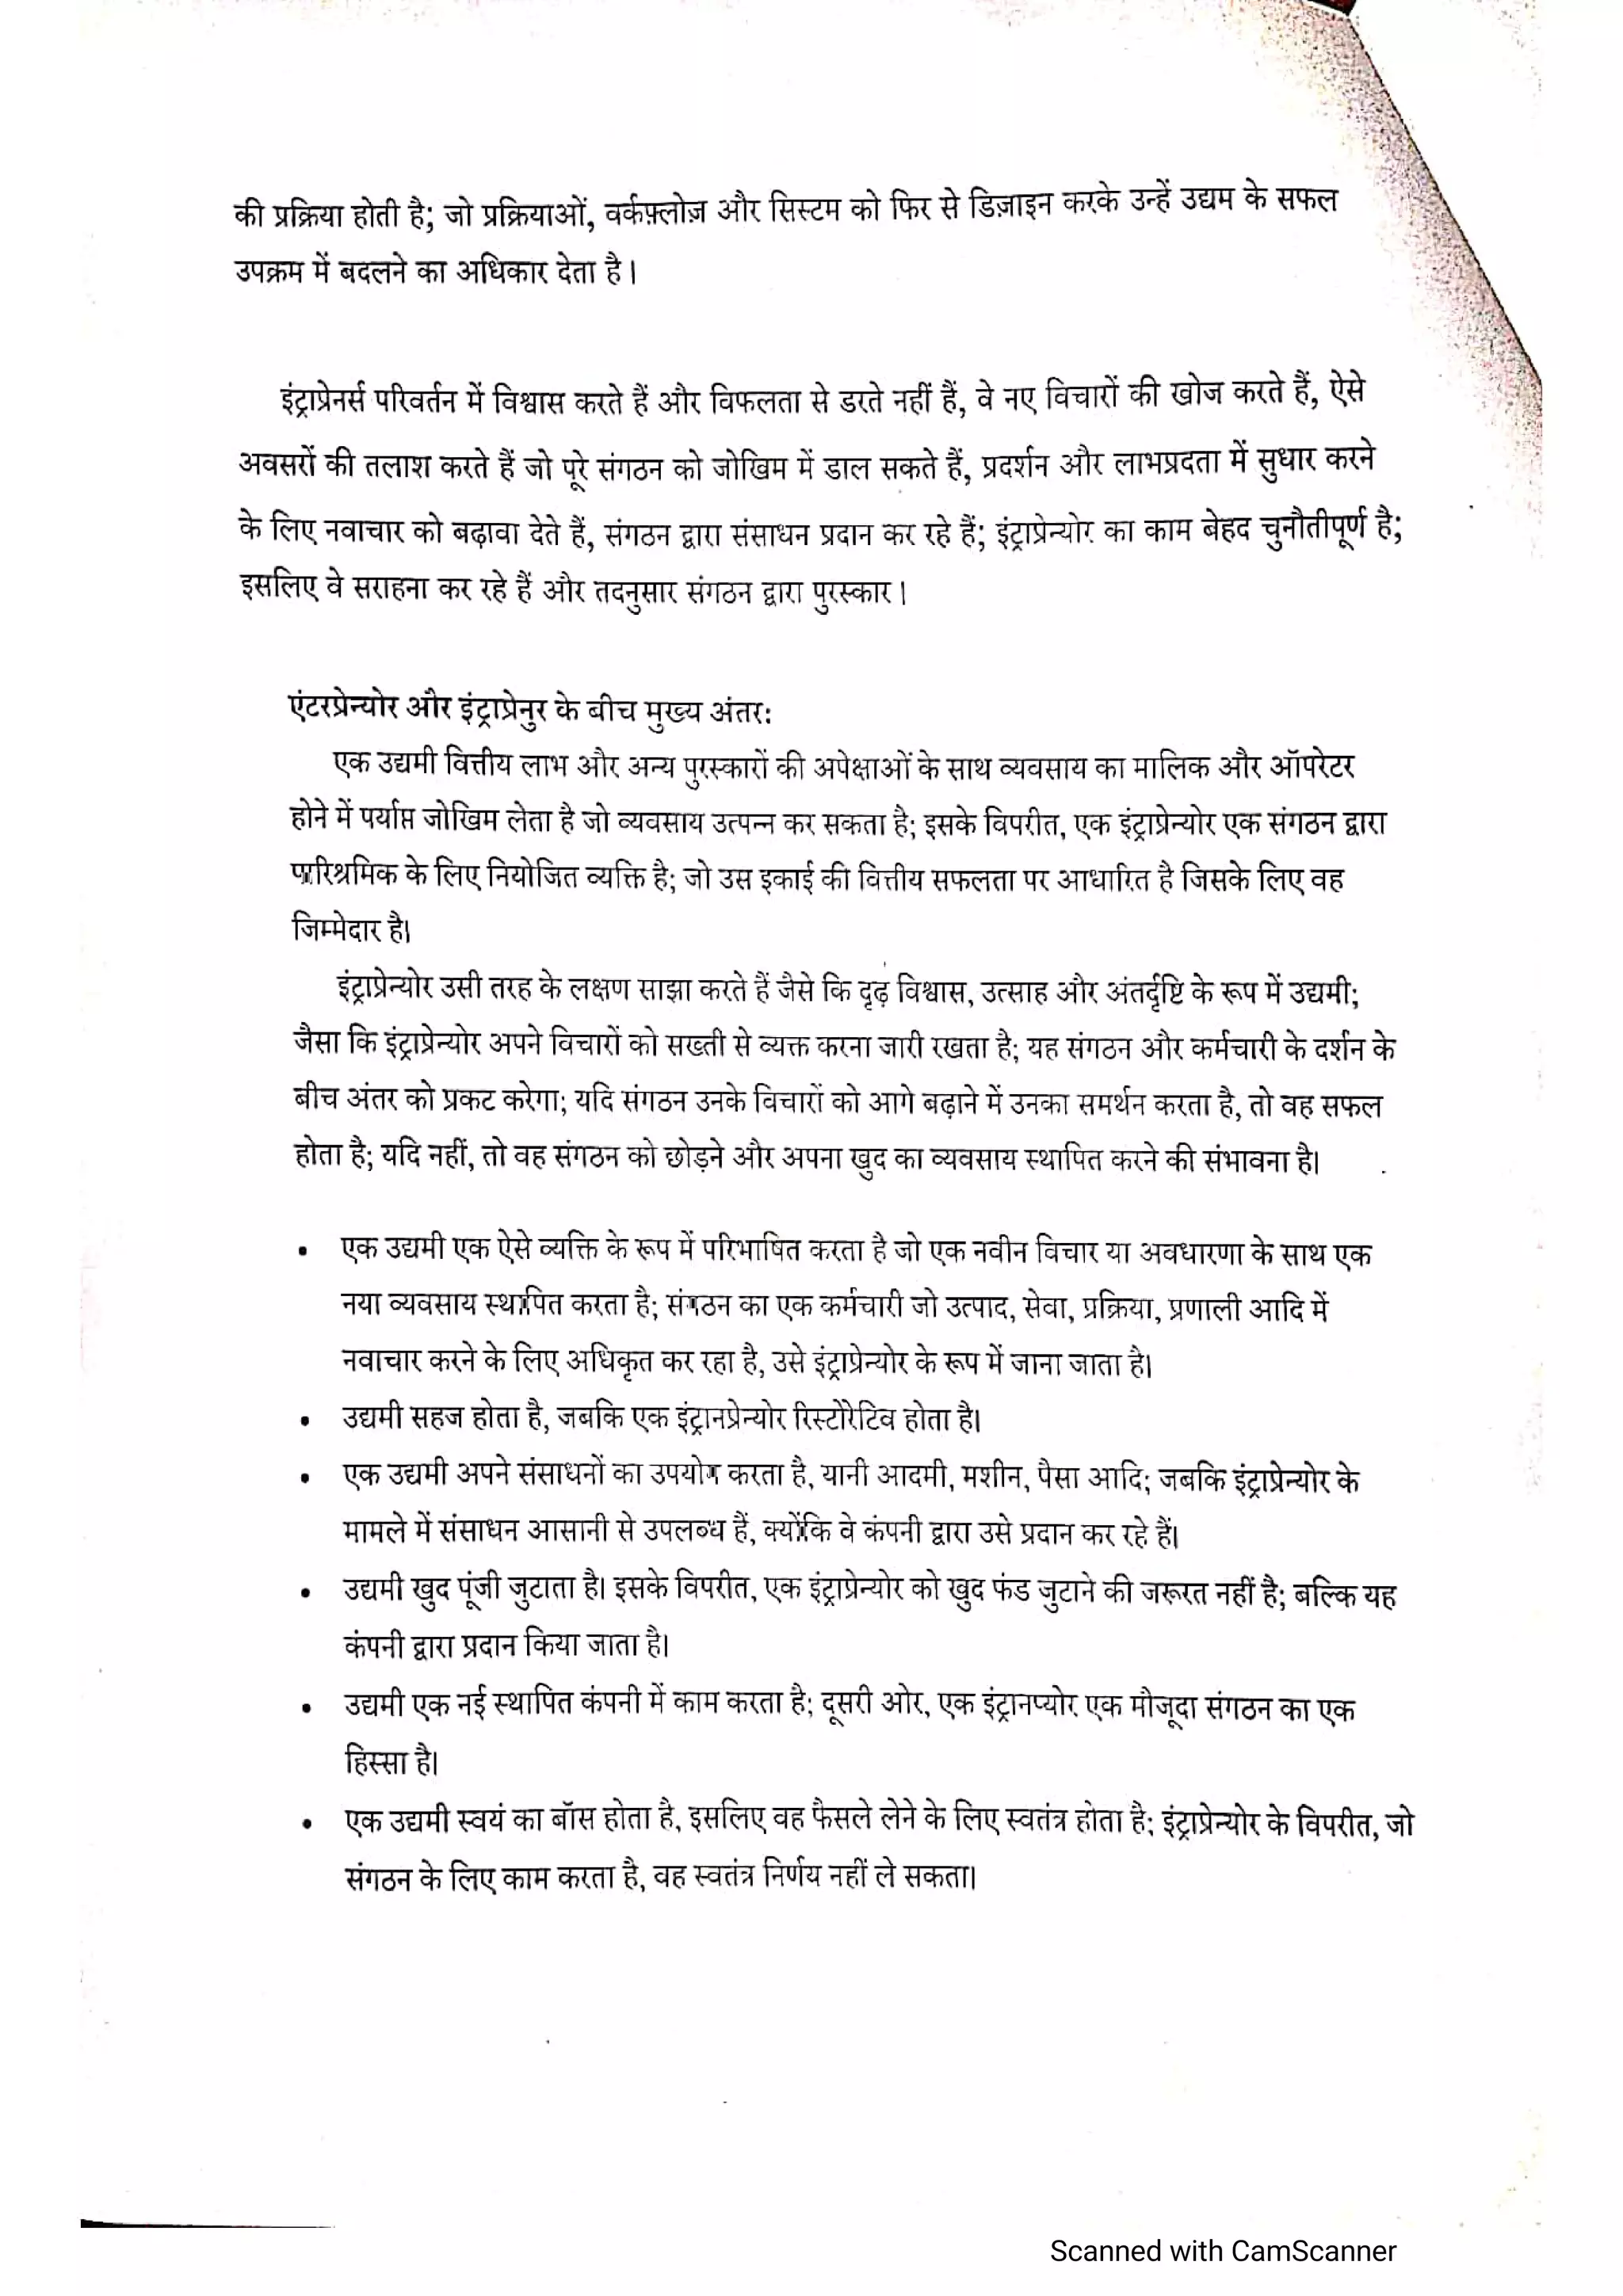 की प्रक्रिया होती है; जो प्रक्रियाओं, वर्कफ़्लोज़ और सिस्टम को फिर से डिज़ाइन करके उन्हें उद्यम के सफल
उपक्रम में बदलने का अधिकार देता है।
इंट्राप्रेनर्स परिवर्तन में विश्वास करते हैं और विफलता से डरते नहीं हैं, वे नए विचारों की खोज करते हैं, ऐसे
अवसरों की तलाश करते हैं जो पूरे संगठन को जोखिम में डाल सकते हैं, प्रदर्शन और लाभप्रदता में सुधार करने
के लिए नवाचार को बढ़ावा देते हैं, संगठन द्वारा संसाधन प्रदान कर रहे हैं; इंट्राप्रेन्योर का काम बेहद चुनौतीपूर्ण है;
इसलिए वे सराहना कर रहे हैं और तदनुसार संगठन द्वारा पुरस्कार।
एंटरप्रेन्योर और इंट्राप्रेनुर के बीच मुख्य अंतर:
एक उद्यमी वित्तीय लाभ और अन्य पुरस्कारों की अपेक्षाओं के साथ व्यवसाय का मालिक और ऑपरेटर
होने में पर्याप्त जोखिम लेता है जो व्यवसाय उत्पन्न कर सकता है; इसके विपरीत, एक इंट्राप्रेन्योर एक संगठन द्वारा
पारिश्रमिक के लिए नियोजित व्यक्ति है; जो उस इकाई की वित्तीय सफलता पर आधारित है जिसके लिए वह
जिम्मेदार है।
इंट्राप्रेन्योर उसी तरह के लक्षण साझा करते हैं जैसे कि दृढ़ विश्वास, उत्साह और अंतर्दृष्टि के रूप में उद्यमी;
जैसा कि इंट्राप्रेन्योर अपने विचारों को सख्ती से व्यक्त करना जारी रखता है; यह संगठन और कर्मचारी के दर्शन के
बीच अंतर को प्रकट करेगा; यदि संगठन उनके विचारों को आगे बढ़ाने में उनका समर्थन करता है, तो वह सफल
होता है; यदि नहीं, तो वह संगठन को छोड़ने और अपना खुद का व्यवसाय स्थापित करने की संभावना है।
• एक उद्यमी एक ऐसे व्यक्ति के रूप में परिभाषित करता है जो एक नवीन विचार या अवधारणा के साथ एक
नया व्यवसाय स्थापित करता है; संगठन का एक कर्मचारी जो उत्पाद, सेवा, प्रक्रिया, प्रणाली आदि में
नवाचार करने के लिए अधिकृत कर रहा है, उसे इंट्राप्रेन्योर के रूप में जाना जाता है।
• उद्यमी सहज होता है, जबकि एक इंट्रानप्रेन्योर रिस्टोरेटिव होता है।
• एक उद्यमी अपने संसाधनों का उपयोग करता है, यानी आदमी, मशीन, पैसा आदि; जबकि इंट्राप्रेन्योर के
मामले में संसाधन आसानी से उपलब्ध हैं, क्योंकि वे कंपनी द्वारा उसे प्रदान कर रहे हैं।
• उद्यमी खुद पूंजी जुटाता है। इसके विपरीत, एक इंट्राप्रेन्योर को खुद फंड जुटाने की जरूरत नहीं है; बल्कि यह
कंपनी द्वारा प्रदान किया जाता है।
• उद्यमी एक नई स्थापित कंपनी में काम करता है; दूसरी ओर, एक इंट्रानप्योर एक मौजूदा संगठन का एक
हिस्सा है।
• एक उद्यमी स्वयं का बॉस होता है, इसलिए वह फैसले लेने के लिए स्वतंत्र होता है; इंट्राप्रेन्योर के विपरीत, जो
संगठन के लिए काम करता है, वह स्वतंत्र निर्णय नहीं ले सकता।
Scanned with CamScanner